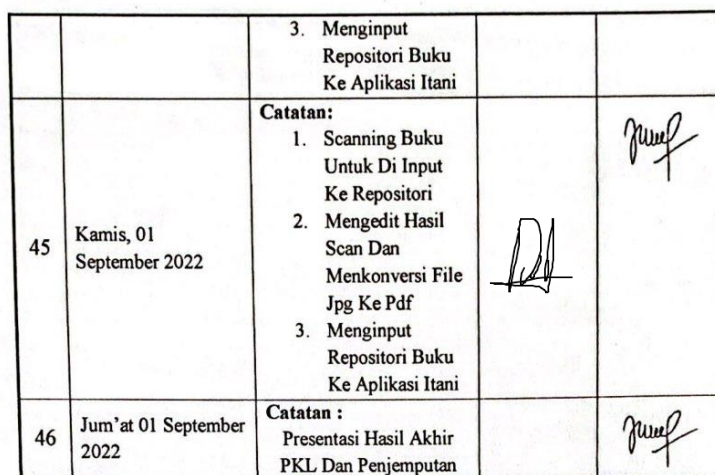 3. Menginput
Repositori Buku
Ke Aplikasi Itani
45
Kamis, 01
September 2022
Catatan:
1. Scanning Buku
Untuk Di Input
Ke Repositori
2. Mengedit Hasil
Scan Dan
Menkonversi File
Jpg Ke Pdf
3. Menginput
Repositori Buku
Ke Aplikasi Itani
46
Jum'at 01 September
2022
Catatan :
Presentasi Hasil Akhir
PKL Dan Penjemputan